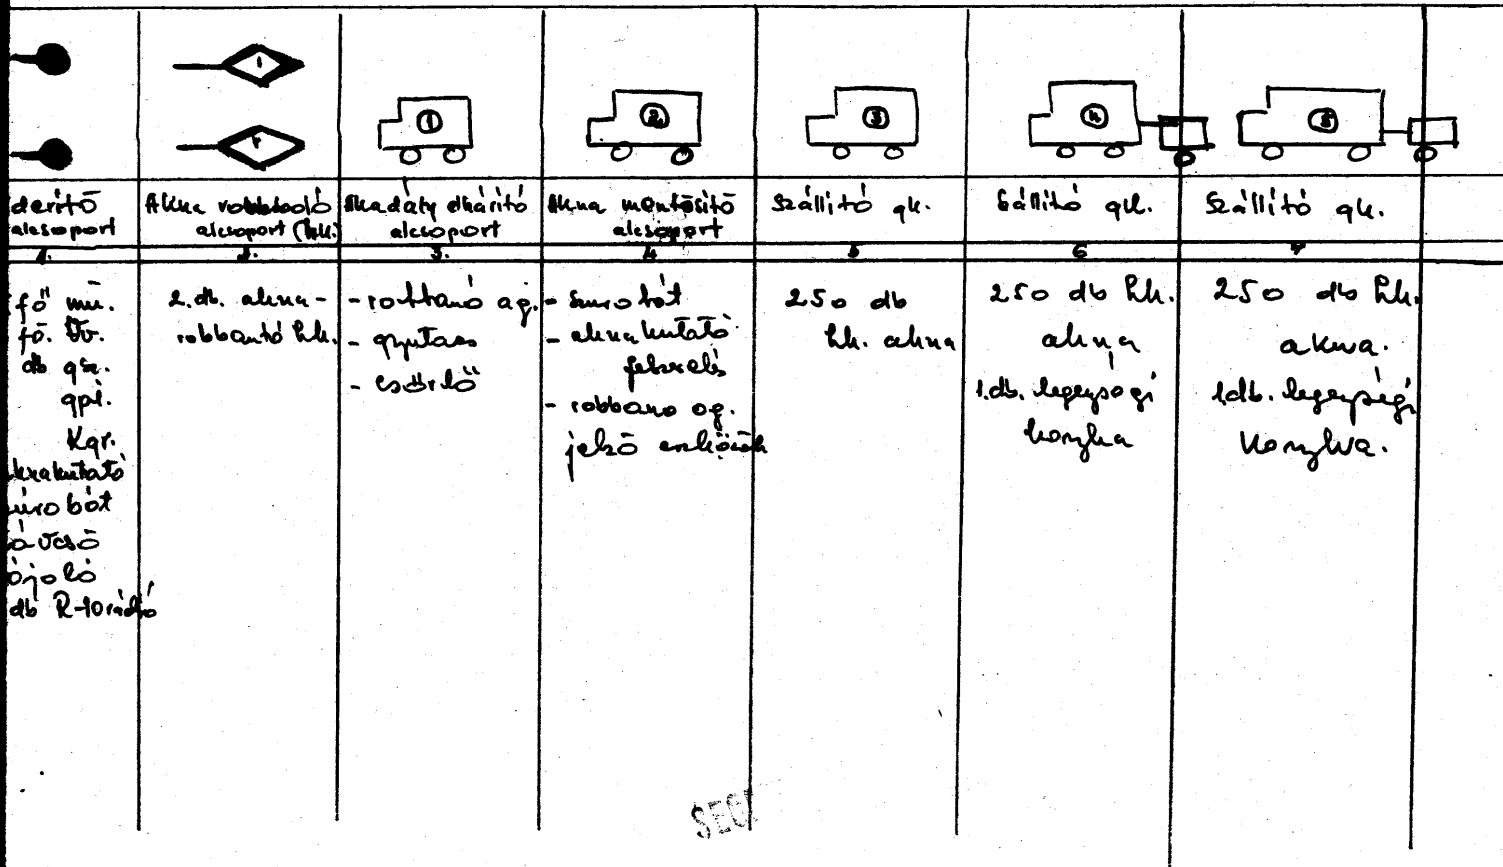 1
2
3
4
5
derítő
alcsoport
Akna robbantó
alcsoport (hk.
Akadály elhárító
alcsoport
Akna mentesítő
alcsoport
Szállító gk.
Szállító gk.
Szállító gk.
1.
2.
3.
4
5
6
7
fő mű.
fő.
db
Kgr.
aknakutató
szúróbót
távcső
tájoló
db R-10 rádió
2. db. akna-
robbantó hk.
- robbanó ag.
- gyutacs
- csörlő
- szuróbót
- aknakutató
- robbano ag.
jelző eszközök
250 db
hk. akna
250 db hk.
akna
1.db. legénységi
konyha
250 db hk.
akna.
1.db. legénységi
konyha.
SEC